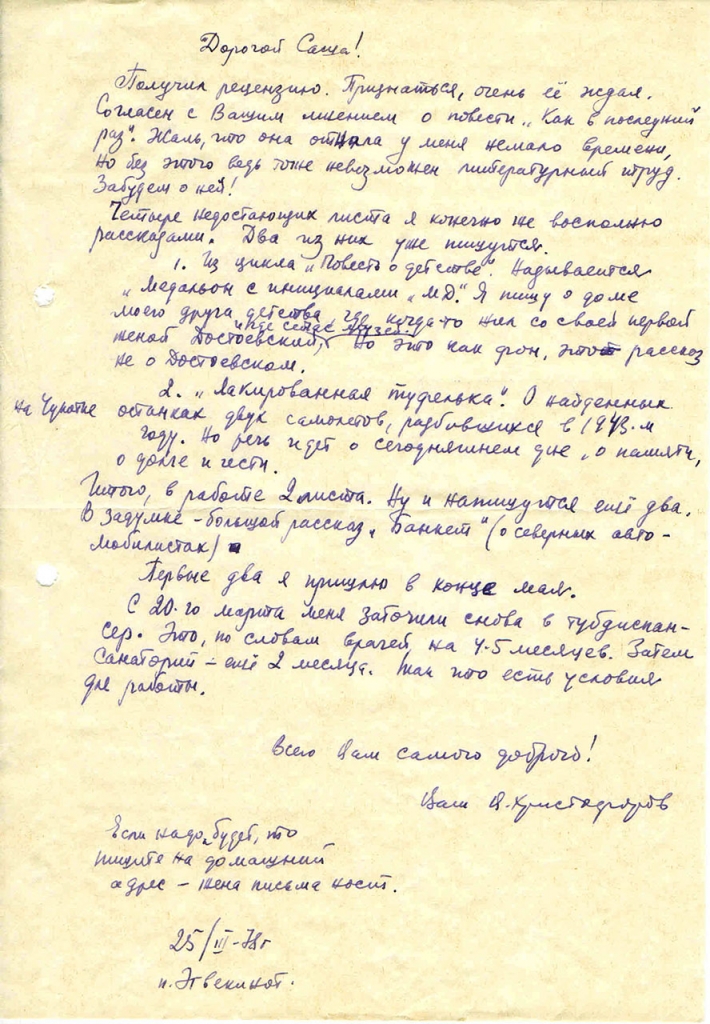 Дорогой Саша!
Получил рецензию. Признаться, очень её ждал.
Согласен с Вашим мнением о повести „Как в последний
раз". Жаль, что она отняла у меня немало времени,
но без этого ведь тоже невозможен литературный труд.
Забудем о ней!
Четыре недостающих листа я конечно же восполню
рассказами. Два из них уже пишутся.
1. Из цикла „Повесть о детстве". Называется
„Медальон с инициалами „МД". Я пишу о доме
моего друга детства, где когда-то жил со своей первой
где сейчас музей.
женой Достоевский, Но это как фон, этот рассказ
не о Достоевском.
2. „Лакированная туфелька". О найденных
на Чукотке останках двух самолетов, разбившихся в 1943-м
году. Но речь идет о сегодняшнем дне, о памяти,
о долге и чести.
Итого, в работе 2 листа. Ну и напишутся ещё два.
В задумке – большой рассказ „Банкет" (о северных авто-
мобилистах)
Первые два я пришлю в конце мая.
С 20-го марта меня заточили снова в тубдиспан-
сер. Это, по словам врачей, на 4-5 месяцев. Затем
санаторий – ещё 2 месяца. Так что есть условия
для работы.
Всего Вам самого доброго!
Ваш В. Христофоров
Если надо будет, то
пишите на домашний
адрес – жена письма носит.
25/III-78г
п. Эгвекинот.